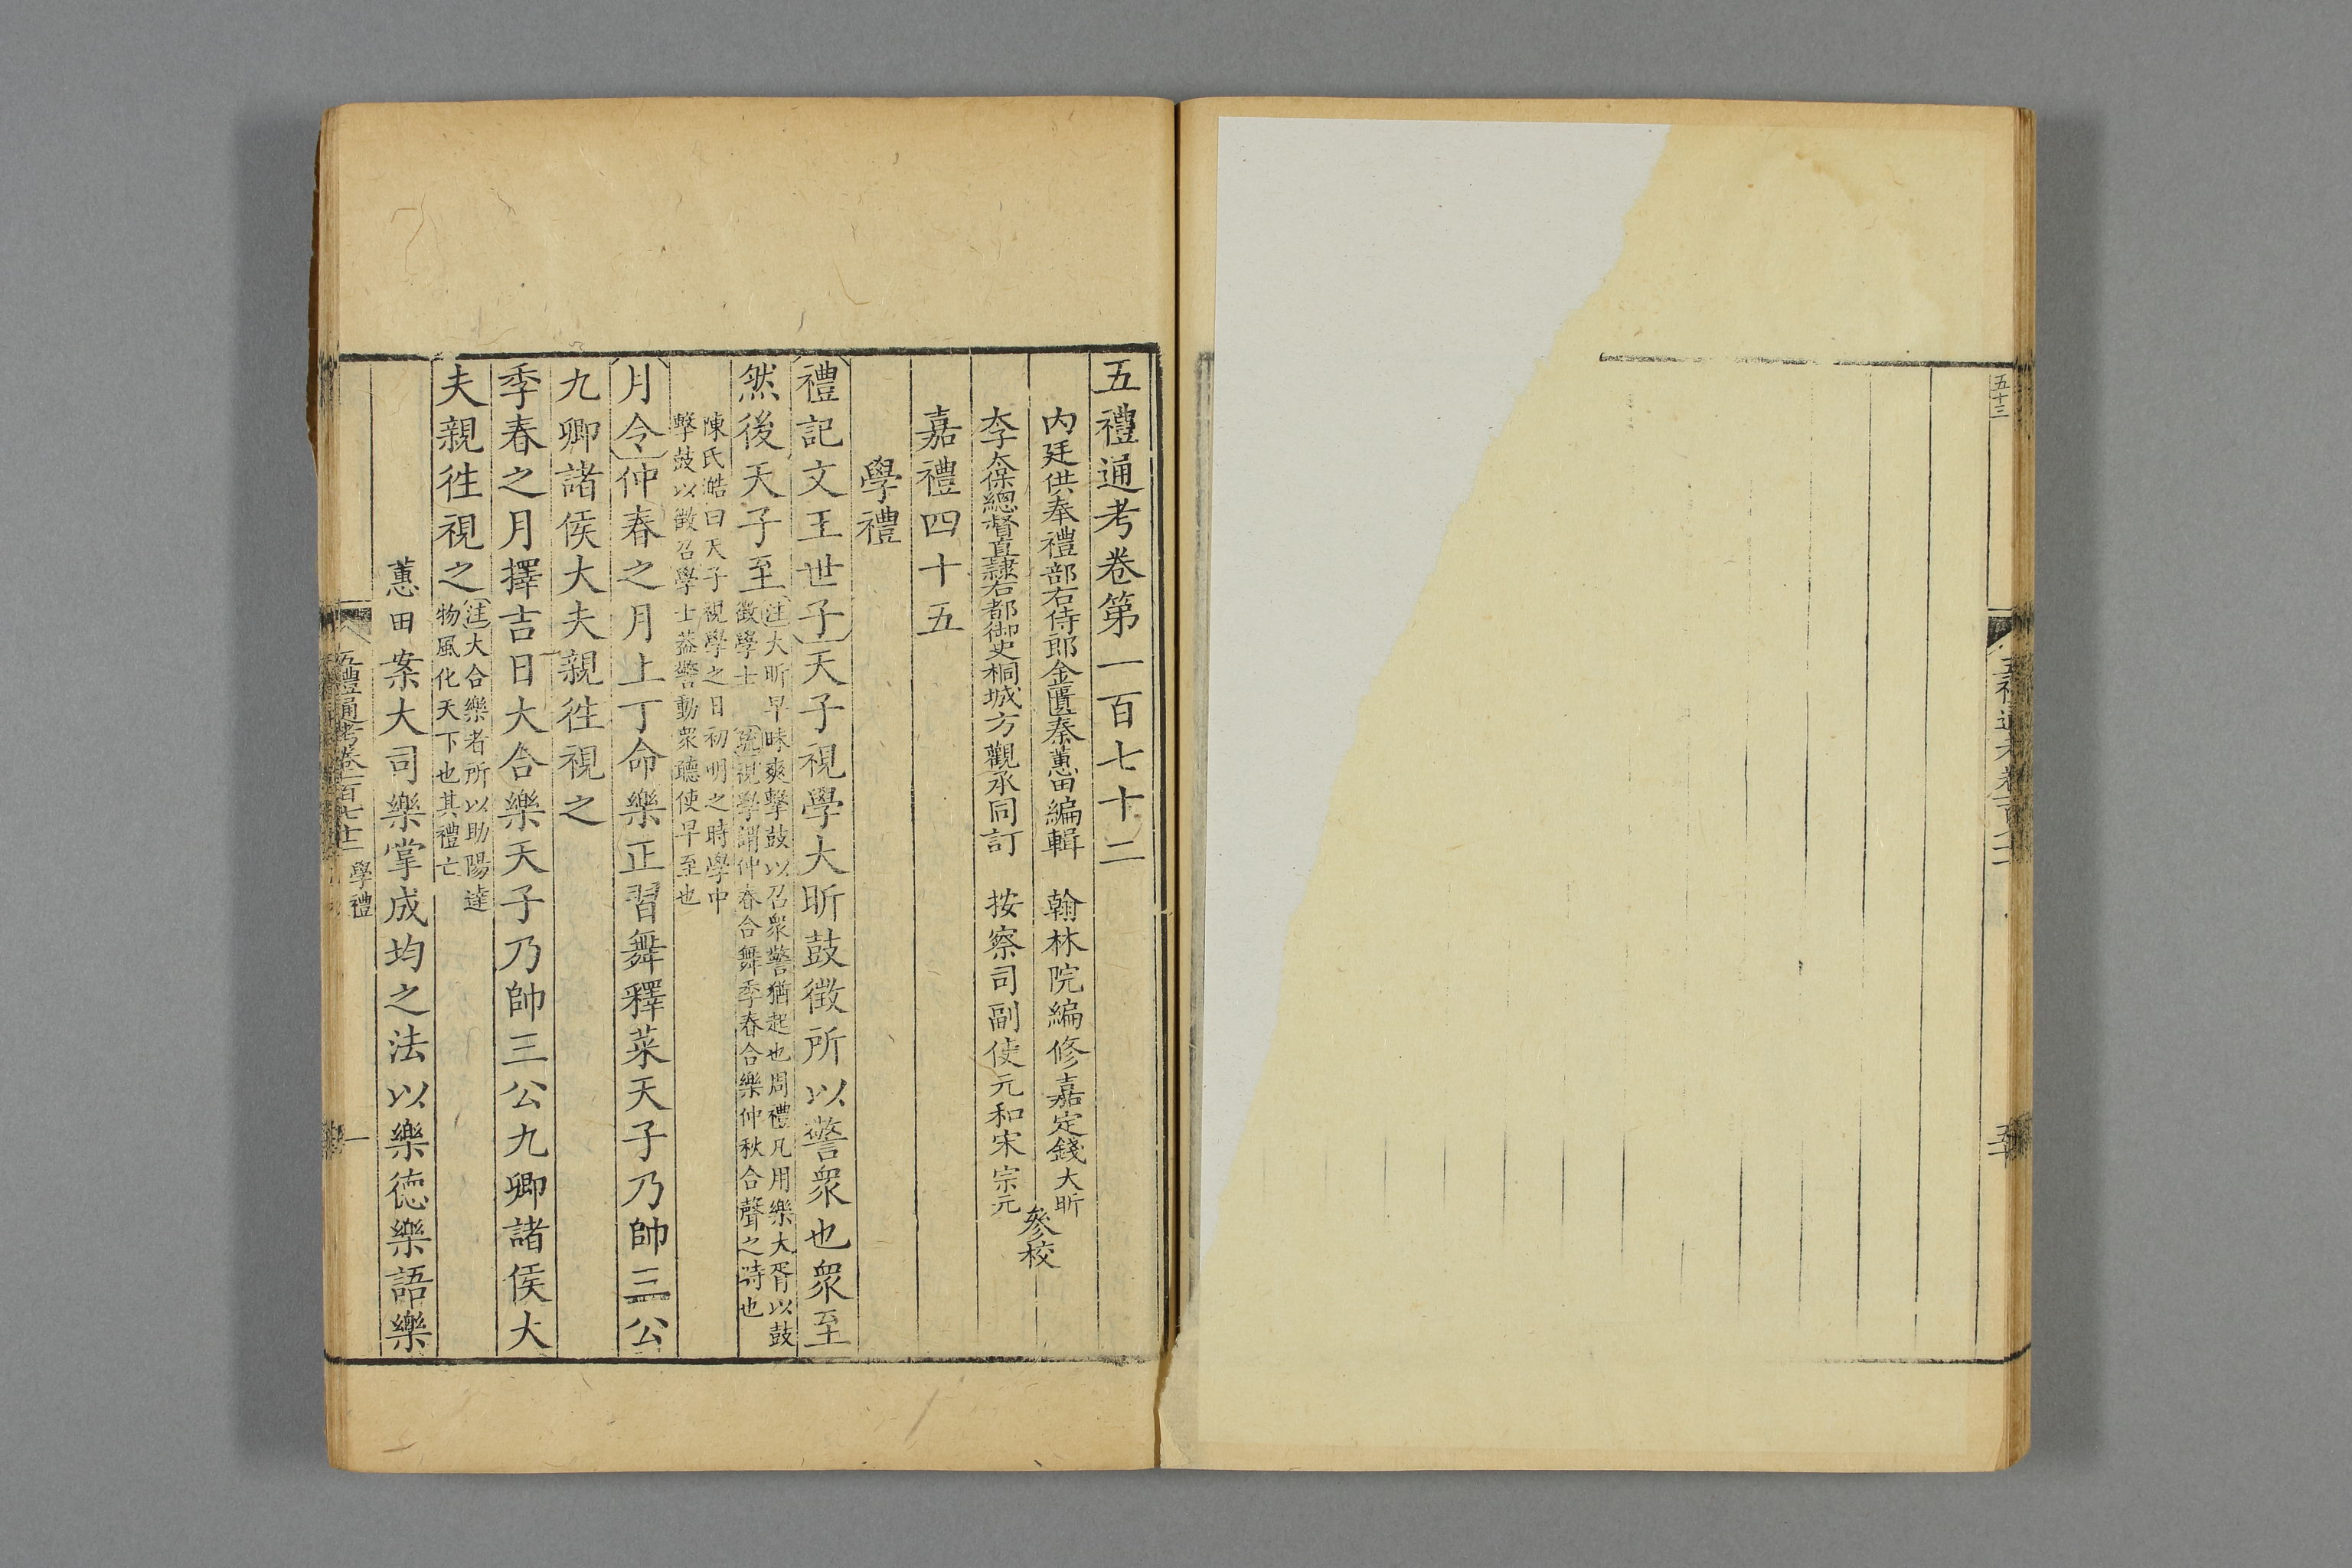 五十三
五禮通考卷第一百七十二
內廷供奉禮部右侍郎金匱秦蕙田編輯　翰林院編修嘉定錢大昕
太子太保總督直隸右都御史桐城方觀承同訂　按察司副使元和宋宗元
參校
嘉禮四十五
學禮
禮記文王世子天子視學大昕鼓徵所以警衆也衆至
然後天子至注大昕早昧爽擊鼓以召衆警猶起也周禮凡用樂大胥以鼓
徵學士　疏視學謂仲春合舞季春合樂仲秋合聲之時也
陳氏澔曰天子視學之日初明之時學中
擊鼓以徵召學士葢警動衆聽使早至也
月令仲春之月上丁命樂正習舞釋菜天子乃帥三公
九卿諸侯大夫親徃視之
季春之月擇吉日大合樂天子乃帥三公九卿諸侯大
夫親徃視之注大合樂者所以助陽達
物風化天下也其禮亡
蕙田案大司樂掌成均之法以樂德樂語樂
五禮通考卷一百七十二　學禮　一